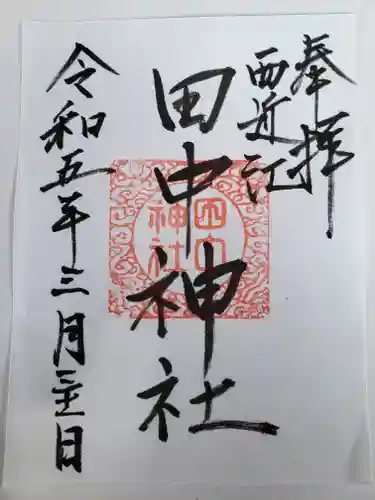 奉拝
西近江
田中神社
田中神社
令和五年三月三十一日